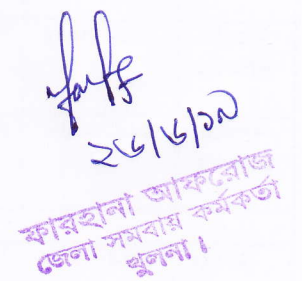 ২৬/৬/১৯
ফারহানা আফরোজ
জেলা সমবায় কর্মকর্তা
খুলনা।